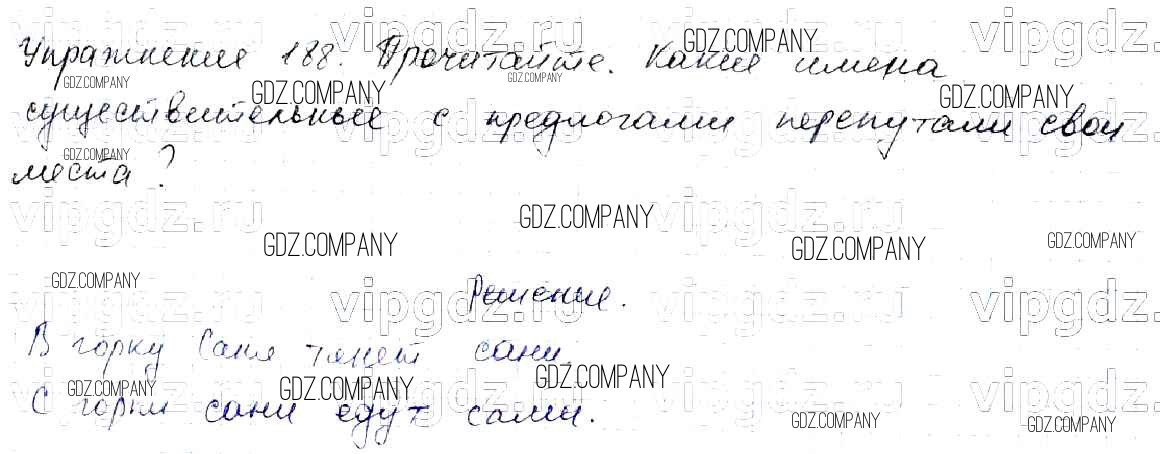 Упражнение 188. Прочитайте. Какие имена
существительные с предлогами перепутали свои
места?
Решение.
В горку Саня тянет сани.
С горки сани едут сами.
vipgdz.ru
GDZ.COMPANY